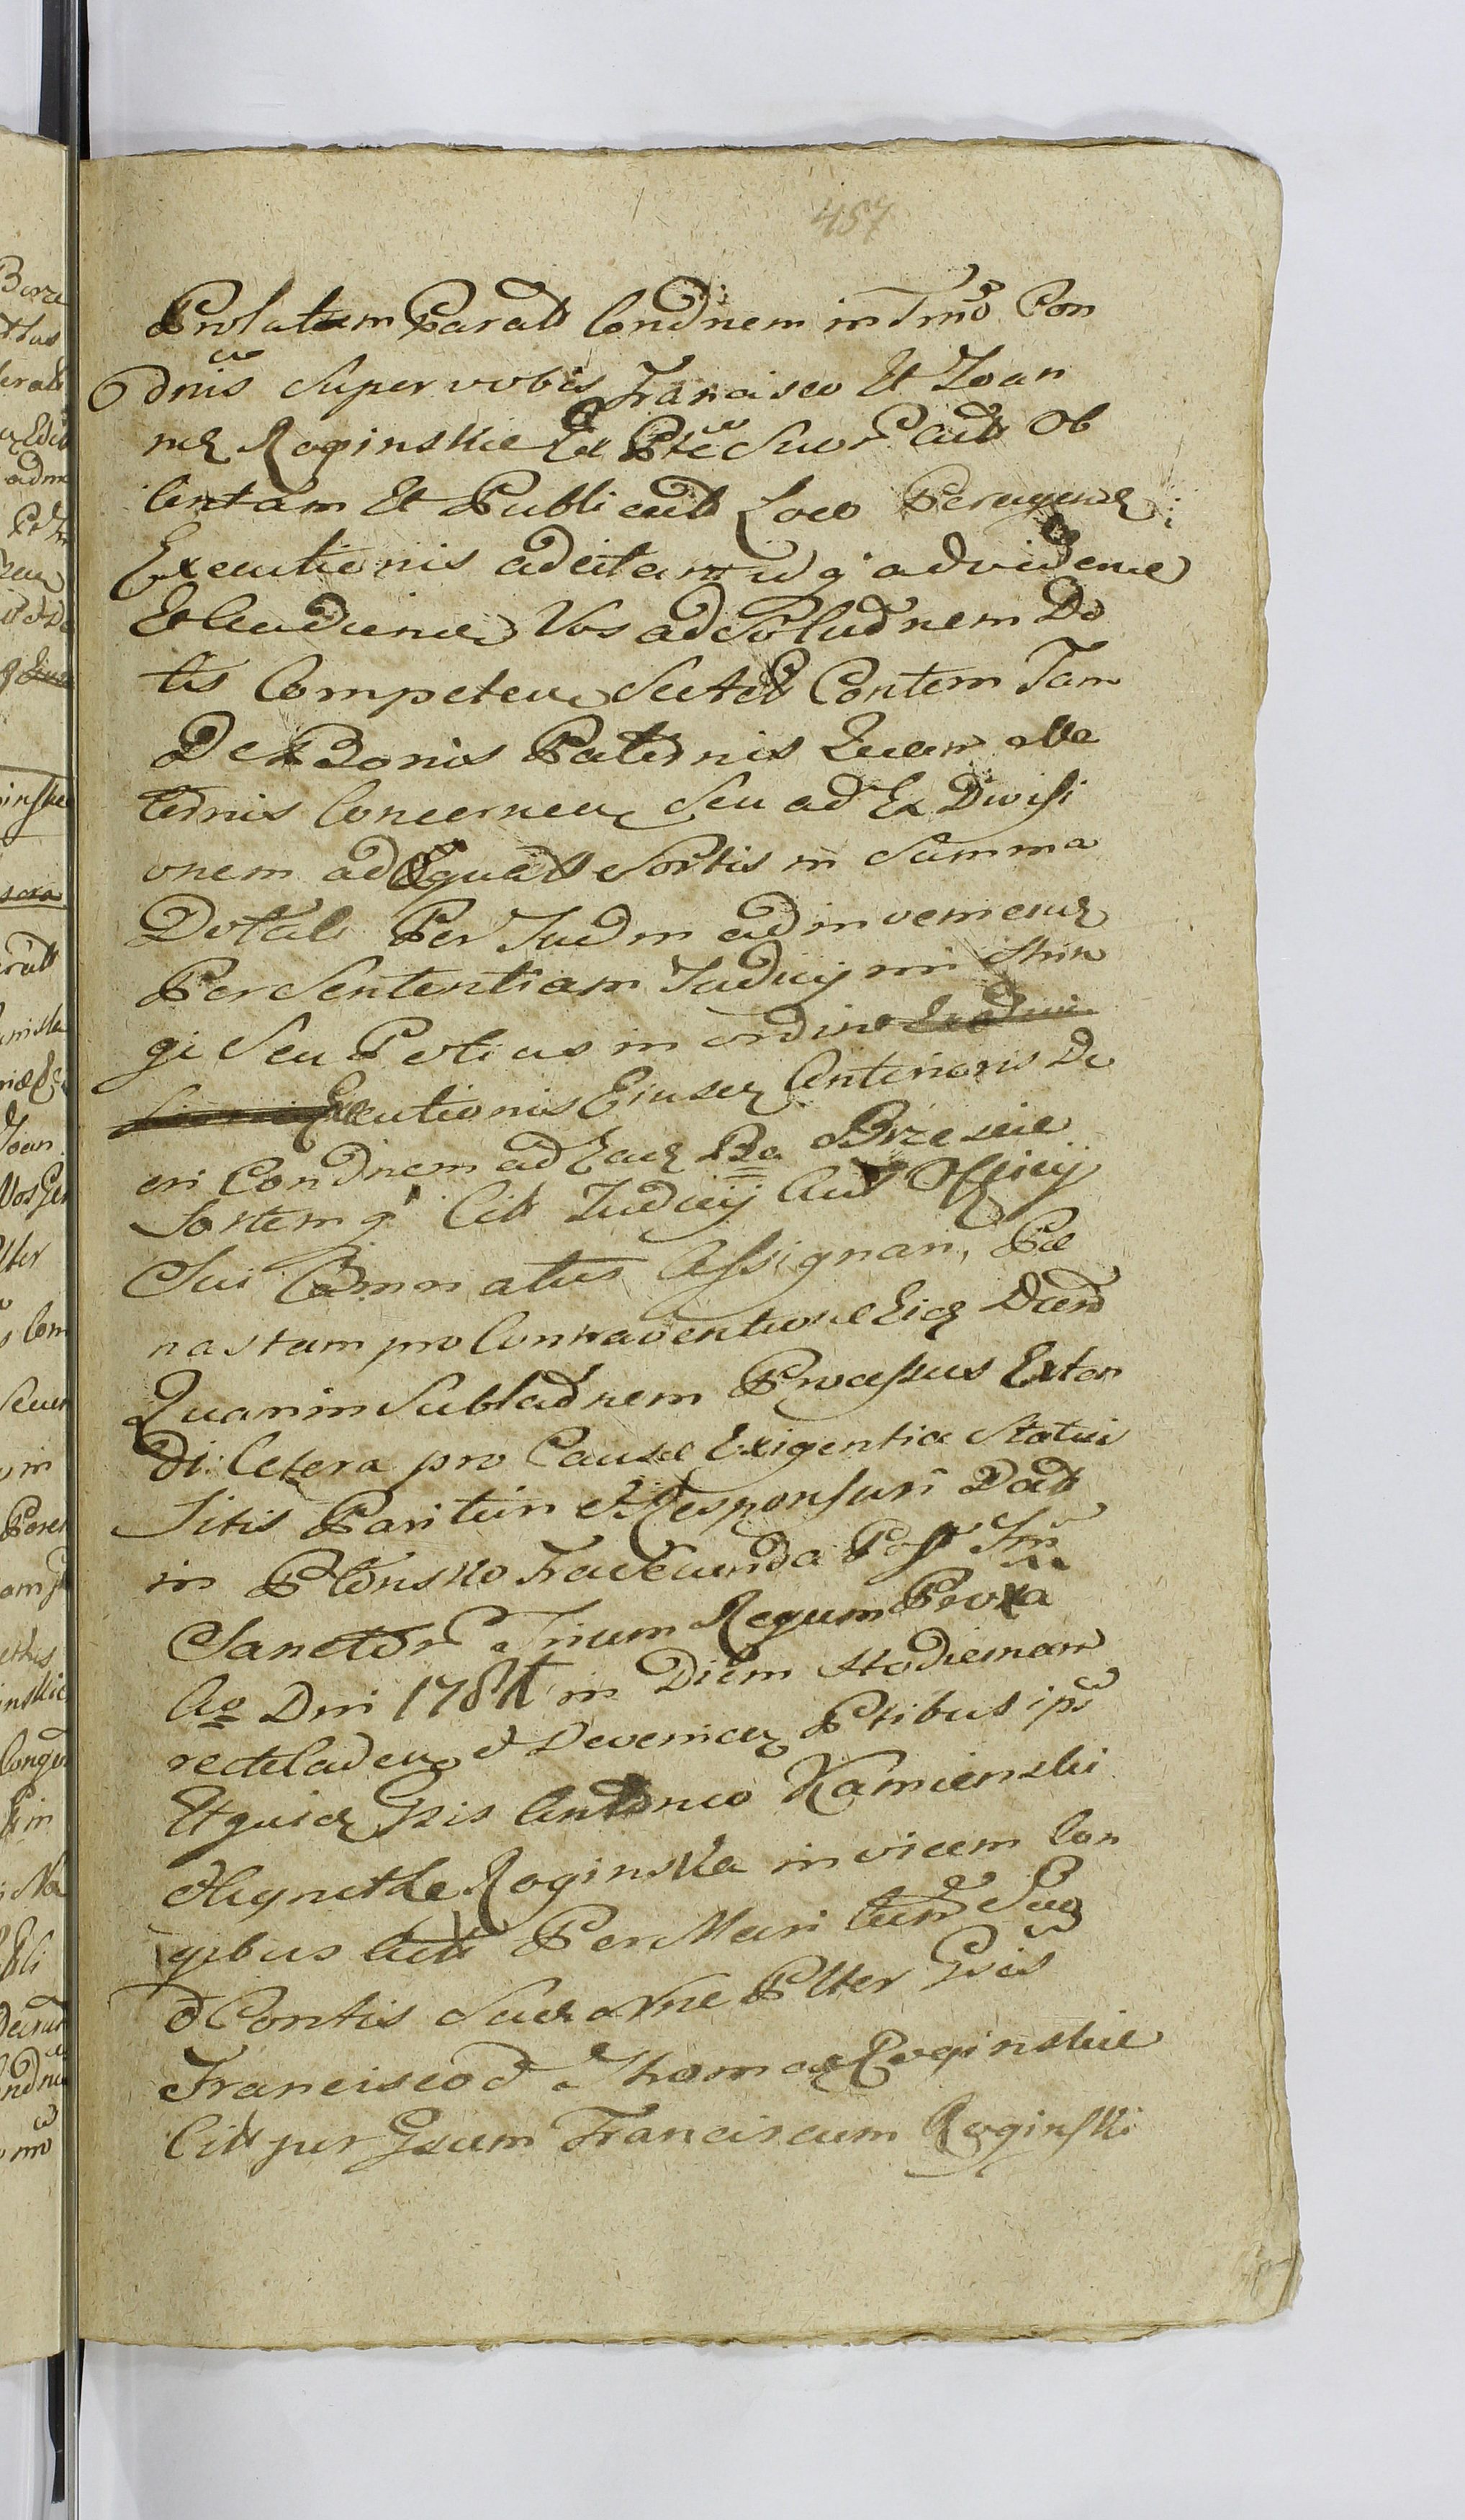 457
Prolatum Paratt Condnem in Tmo Con
dnis Super vobis Francisco Et Joan
ne Roginskie Ex Pte Suor Actt Ob
tentam Et Publicatt Loco Peragend:
Executionis adcitan idq adviden
Et Audien Vos ad Soludnem Do
tis Competen Sttett Contem Tam
De Bonis Paternis Quam Ma
ternis Concernen Seu ad Ex Divisi
onem adEquatt Sortis in Summa
Dotali Per Judm adinvenien
Per Sententiam Judicij mi Strin
gi Seu Potius in ordine
Executionis Eiusd Anterioris De
cri Condnem ad Ead Ba Brzescie
Sortem q Citt Judicij Aut Officij
Sui Comnatus Assignan, Pæ
nas tam pro Contraventione Eid Decre
Quam in Subladnem Processus Exten
di: Cetera pro Causæ Exigentia Statui
Sitis Parituri et Responsuri Datt
in Płonsko Fra Secunda Post Fm
Sanctor Trium Regum Proxa
Ao Dni 1787 in Diem Hodiernam
recte Caden d Devenien Ptibus ips
Et quid Gsis Antonio Kamienski
Agnethe Roginska invicem Con
gibus Actt Per Maritum Suu
d Contis Suæ Nne Plter Gsis
Francisco d Thoma Roginskie
Citt per Gsum Franciscum Roginski